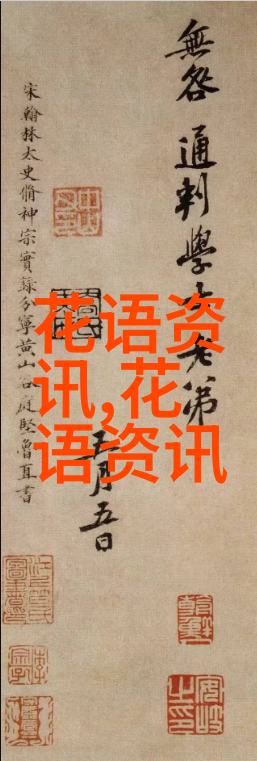 無咎通判學士老弟
五月五日
宋翰林太史脩神宗實錄分寧黃山谷庭堅魯直書
花语资
讯,花
语资讯